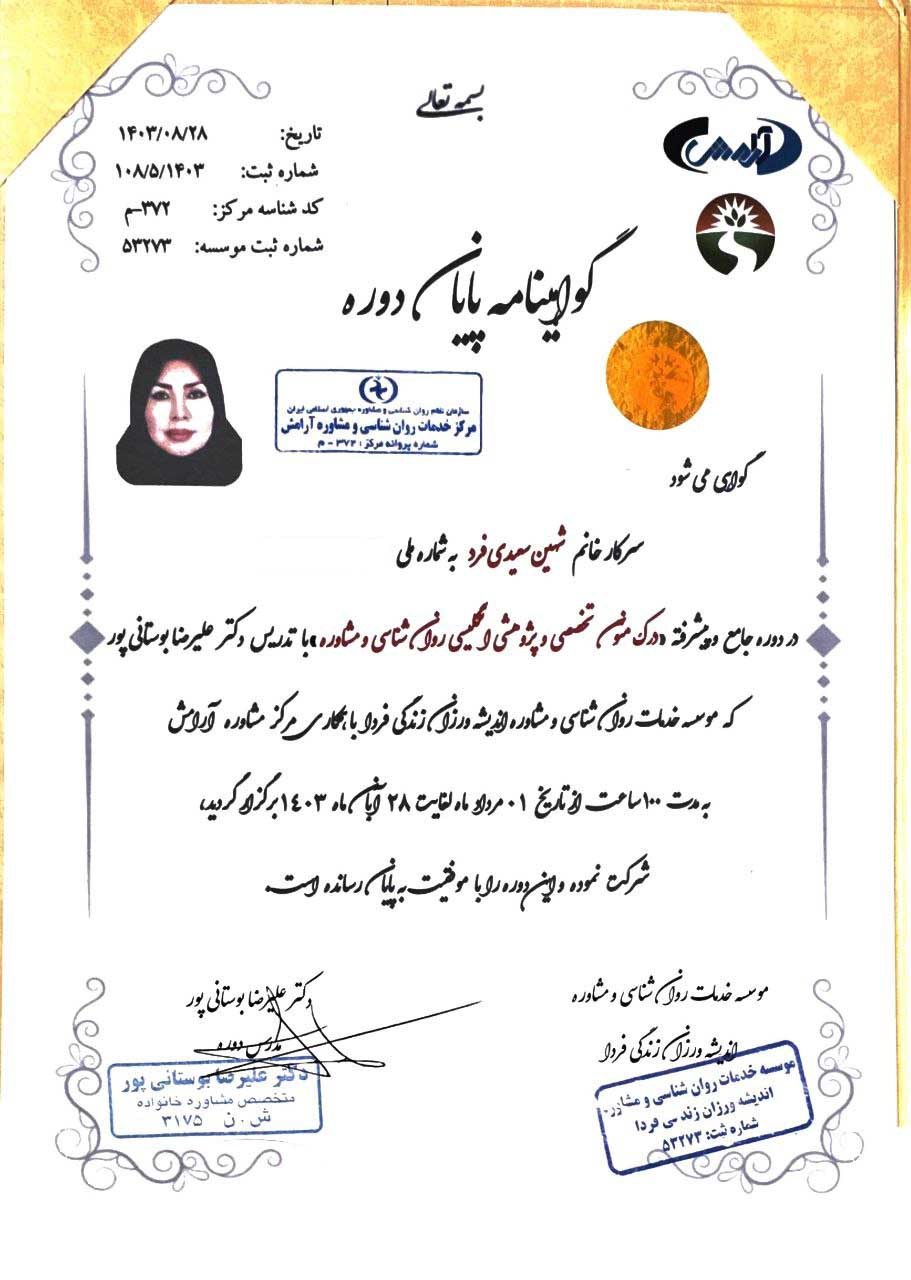 بسمه تعالی
آرامش
تاریخ: ۱۴۰۳/۰۸/۲۸
شماره ثبت: ۱۰۸/۵/۱۴۰۳
کد شناسه مرکز: ۳۷۲-م
شماره ثبت موسسه: ۵۳۲۷۳
گواهینامه پایان دوره
سازمان نظام روان شناسی و مشاوره جمهوری اسلامی ایران
مرکز خدمات روان شناسی و مشاوره آرامش
شماره پروانه مرکز: ۳۷۲ - م
گواهی می شود
سرکار خانم شهین سعیدی فرد به شماره ملی
در دوره جامع و پیشرفته «درک متون تخصصی و پژوهشی انگلیسی روان شناسی و مشاوره» با تدریس دکتر علیرضا بوستانی پور
که موسسه خدمات روان شناسی و مشاوره اندیشه ورزان زندگی فردا با همکاری مرکز مشاوره آرامش
به مدت ۱۰۰ ساعت از تاریخ ۰۱ مرداد ماه لغایت ۲۸ آبان ماه ۱۴۰۳ برگزار گردید،
شرکت نموده و این دوره را با موفقیت به پایان رسانده است.
موسسه خدمات روان شناسی و مشاوره
اندیشه ورزان زندگی فردا
موسسه خدمات روان شناسی و مشاوره
اندیشه ورزان زندگی فردا
شماره ثبت: ۵۳۲۷۳
دکتر علیرضا بوستانی پور
مدرس دوره
دکتر علیرضا بوستانی پور
متخصص مشاوره خانواده
ش.ن ۳۱۷۵